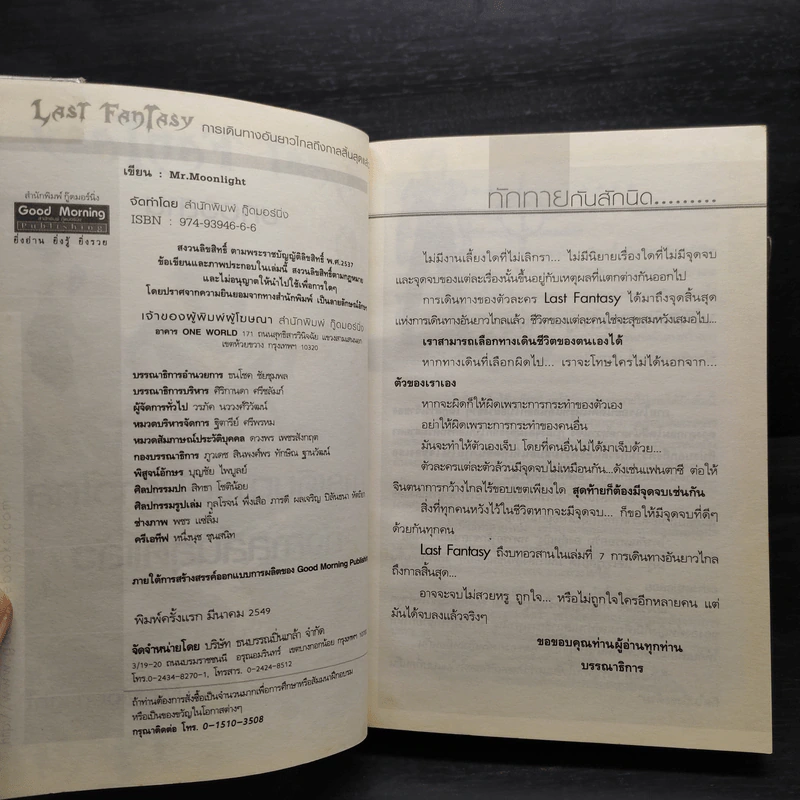 LAST FANTASY การเดินทางอันยาวไกลถึงกาลสิ้นสุด
เขียน : Mr.Moonlight
สำนักพิมพ์ กู๊ดมอร์นิ่ง
Good Morning
สำนักพิมพ์ กู๊ดมอร์นิ่ง
Publishing
ยิ่งอ่าน ยิ่งรู้ ยิ่งรวย
จัดทำโดย สำนักพิมพ์ กู๊ดมอร์นิ่ง
ISBN : 974-93946-6-6
สงวนลิขสิทธิ์ ตามพระราชบัญญัติลิขสิทธิ์ พ.ศ.2537
ข้อเขียนและภาพประกอบในเล่มนี้ สงวนลิขสิทธิ์ตามกฎหมาย
และไม่อนุญาตให้นำไปใช้เพื่อการใดๆ
โดยปราศจากความยินยอมจากทางสำนักพิมพ์ เป็นลายลักษณ์อักษร
เจ้าของผู้พิมพ์ผู้โฆษณา สำนักพิมพ์ กู๊ดมอร์นิ่ง
อาคาร ONE WORLD 171 ถนนสุทธิสารวินิจฉัย แขวงสามเสนนอก
เขตห้วยขวาง กรุงเทพฯ 10320
บรรณาธิการอำนวยการ ธนโชค ชัยชุมพล
บรรณาธิการบริหาร ศิริกานดา ศรีชลัมภ์
ผู้จัดการทั่วไป วรภัค นววงศ์วิวัฒน์
หมวดบริหารจัดการ ฐิตารีย์ ศรีพรหม
หมวดสัมภาษณ์ประวัติบุคคล ดวงพร เพชรสังกฤต
กองบรรณาธิการ ภูวเดช สินพงศ์พร ทักษิณ ฐานวัฒน์
พิสูจน์อักษร บุญชัย ไพบูลย์
ศิลปกรรมปก สิทธา โชติน้อย
ศิลปกรรมรูปเล่ม กุลโรจน์ พึ่งเสือ ภารดี ผลเจริญ ปิลันธนา
ช่างภาพ พชร แซ่ลิ้ม
ครีเอทีฟ หนึ่งนุช ชุนสนิท
ภายใต้การสร้างสรรค์ออกแบบการผลิตของ Good Morning Publishing
พิมพ์ครั้งแรก มีนาคม 2549
จัดจำหน่ายโดย บริษัท ธนบรรณปิ่นเกล้า จำกัด
3/19-20 ถนนบรมราชชนนี อรุณอมรินทร์ เขตบางกอกน้อย กรุงเทพฯ
โทร.0-2434-8270-1, โทรสาร. 0-2424-8512
ถ้าท่านต้องการสั่งซื้อเป็นจำนวนมากเพื่อการศึกษาหรือสัมมนาฝึกอบรม
หรือเป็นของขวัญในโอกาสต่างๆ
กรุณาติดต่อ โทร. 0-1510-3508
ทักทายกันสักนิด.........
ไม่มีงานเลี้ยงใดที่ไม่เลิกรา... ไม่มีนิยายเรื่องใดที่ไม่มีจุดจบ
และจุดจบของแต่ละเรื่องนั้นขึ้นอยู่กับเหตุผลที่แตกต่างกันออกไป
การเดินทางของตัวละคร Last Fantasy ได้มาถึงจุดสิ้นสุด
แห่งการเดินทางอันยาวไกลแล้ว ชีวิตของแต่ละคนใช่จะสุขสมหวังเสมอไป...
เราสามารถเลือกทางเดินชีวิตของตนเองได้
หากทางเดินที่เลือกผิดไป... เราจะโทษใครไม่ได้นอกจาก...
ตัวของเราเอง
หากจะผิดก็ให้ผิดเพราะการกระทำของตัวเอง
อย่าให้ผิดเพราะการกระทำของคนอื่น
มันจะทำให้ตัวเองเจ็บ โดยที่คนอื่นไม่ได้มาเจ็บด้วย...
ตัวละครแต่ละตัวล้วนมีจุดจบไม่เหมือนกัน...ดังเช่นแฟนตาซี ต่อให้
จินตนาการกว้างไกลไร้ขอบเขตเพียงใด สุดท้ายก็ต้องมีจุดจบเช่นกัน
สิ่งที่ทุกคนหวังไว้ในชีวิตหากจะมีจุดจบ... ก็ขอให้มีจุดจบที่ดีๆ
ด้วยกันทุกคน
Last Fantasy ถึงบทอวสานในเล่มที่ 7 การเดินทางอันยาวไกล
ถึงกาลสิ้นสุด...
อาจจะจบไม่สวยหรู ถูกใจ... หรือไม่ถูกใจใครอีกหลายคน แต่
มันได้จบลงแล้วจริงๆ
ขอขอบคุณท่านผู้อ่านทุกท่าน
บรรณาธิการ